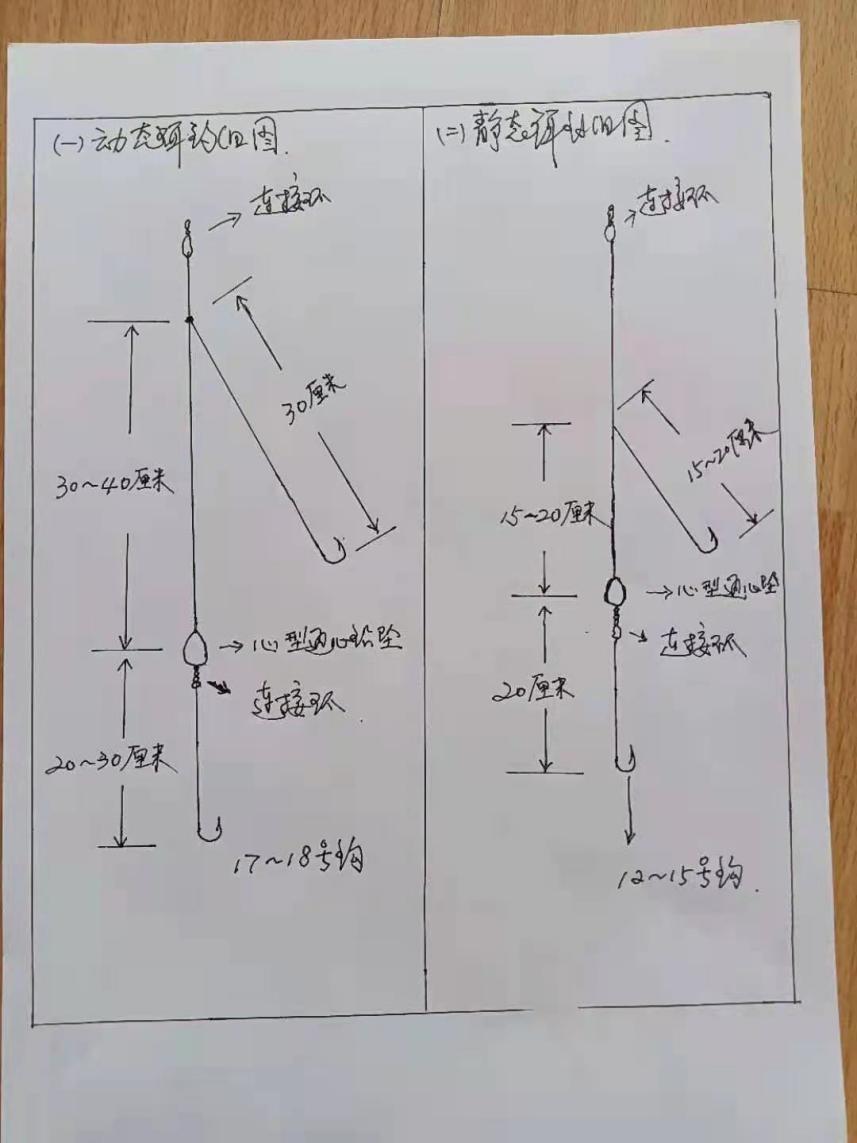 (一)动态饵钓组图.
连接环
30厘米
30~40厘米
心型通心铅坠
连接环.
20~30厘米
17~18号钩
(二)静态饵钓组图.
连接环
15~20厘米
15~20厘米
心型通心坠
连接环
20厘米
12~15号钩.